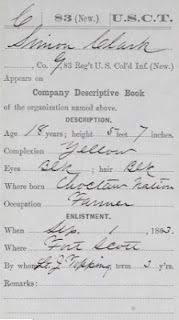 C 83 (New.) U.S.C.T.
Simon Clark
, Co. G, 83 Reg't U. S. Col'd Inf. (New.)
Appears on
Company Descriptive Book
of the organization named above.
DESCRIPTION.
Age 18 years; height 5 feet 7 inches.
Complexion Yellow
Eyes Blk ; hair Blk
Where born Choctaw Nation
Occupation Farmer
ENLISTMENT.
When Sep. 1 , 1863.
Where Fort Scott
By whom Lt. J. Topping term 3 y'rs.
Remarks: